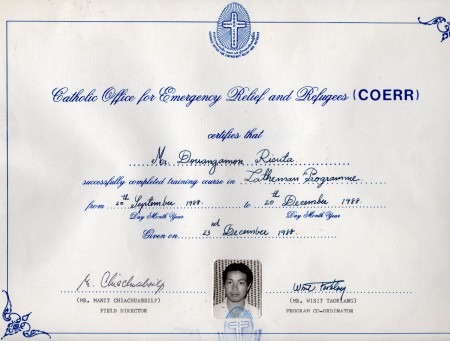 Catholic Office for Emergency Relief and Refugees (COERR)
certifies that
Mr. Douangamon Risuta
successfully completed training course in "Latheman" Programme
from 20th September 1988. to 20th December 1988.
Day Month Year Day Month Year
Given on 23rd December 1988.
(MR. MANIT CHIACHUABSILP) (MR. WISIT TACHLANG)
FIELD DIRECTOR PROGRAM CO-ORDINATOR